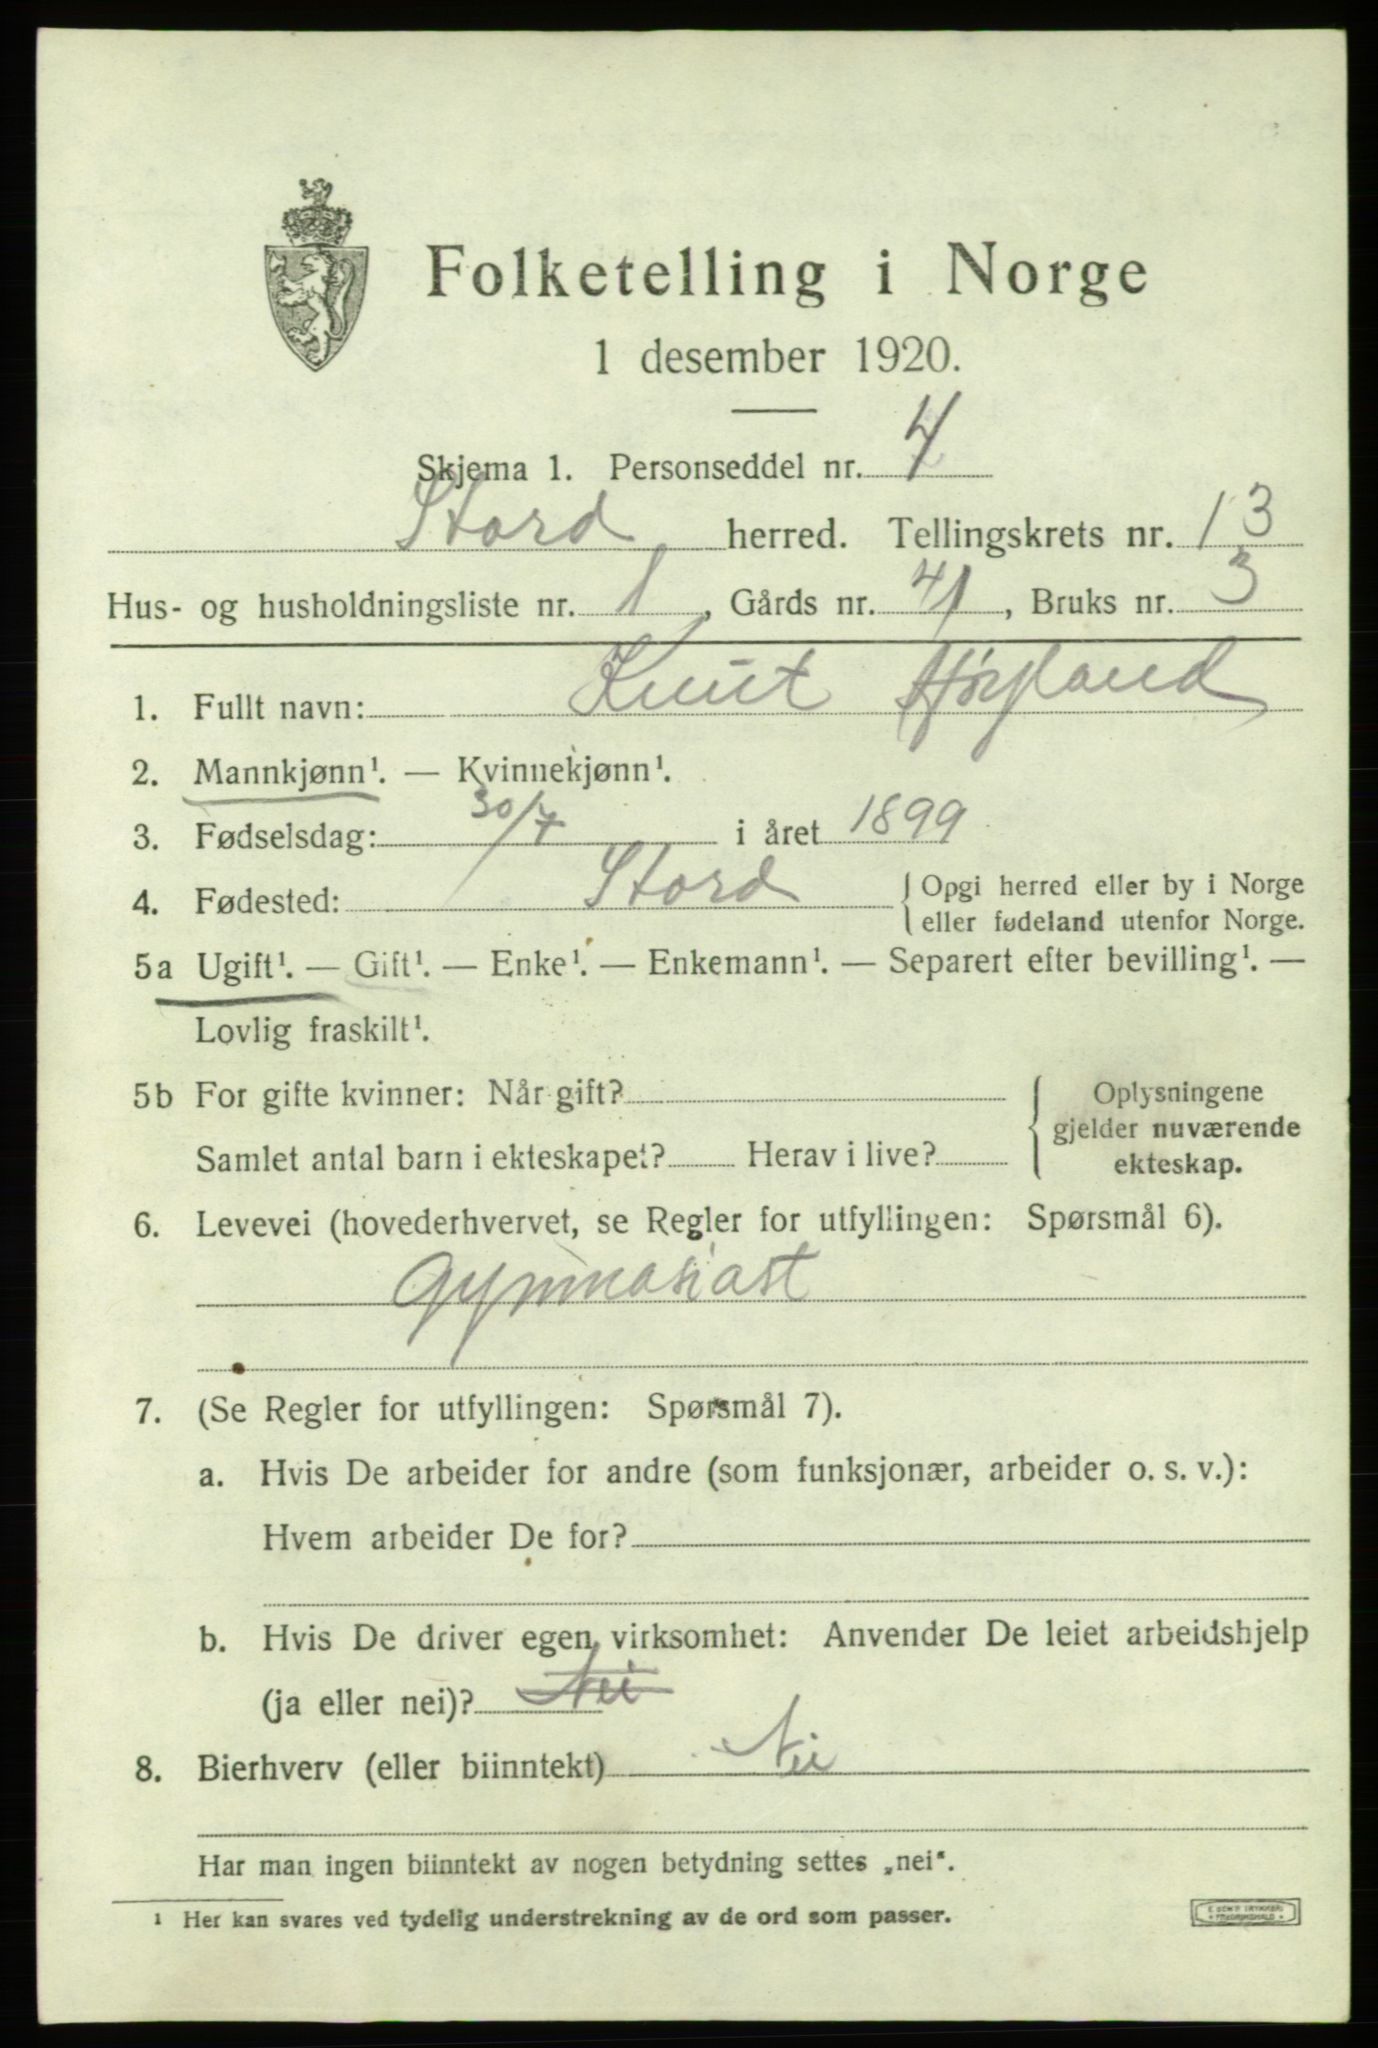 Folketelling i Norge
1 desember 1920.
Skjema 1. Personseddel nr. 4
Stord herred. Tellingskrets nr. 13
Hus- og husholdningsliste nr. 1, Gårds nr. 41, Bruks nr. 3
1. Fullt navn: Knut Høyland
2. Mannkjønn¹. — Kvinnekjønn¹.
3. Fødselsdag: 30/7 i året 1899
4. Fødested: Stord { Opgi herred eller by i Norge
eller fødeland utenfor Norge.
5a Ugift¹. — Gift¹. — Enke¹. — Enkemann¹. — Separert efter bevilling¹. —
Lovlig fraskilt¹.
5b For gifte kvinner: Når gift? { Oplysningene
gjelder nuværende
Samlet antal barn i ekteskapet? Herav i live?
ekteskap.
6. Levevei (hovederhvervet, se Regler for utfyllingen: Spørsmål 6).
Gymnasiast
7. (Se Regler for utfyllingen: Spørsmål 7).
a. Hvis De arbeider for andre (som funksjonær, arbeider o. s. v.):
Hvem arbeider De for?
b. Hvis De driver egen virksomhet: Anvender De leiet arbeidshjelp
(ja eller nei)? Nei
8. Bierhverv (eller biinntekt) Nei
Har man ingen biinntekt av nogen betydning settes „nei“.
¹ Her kan svares ved tydelig understrekning av de ord som passer.